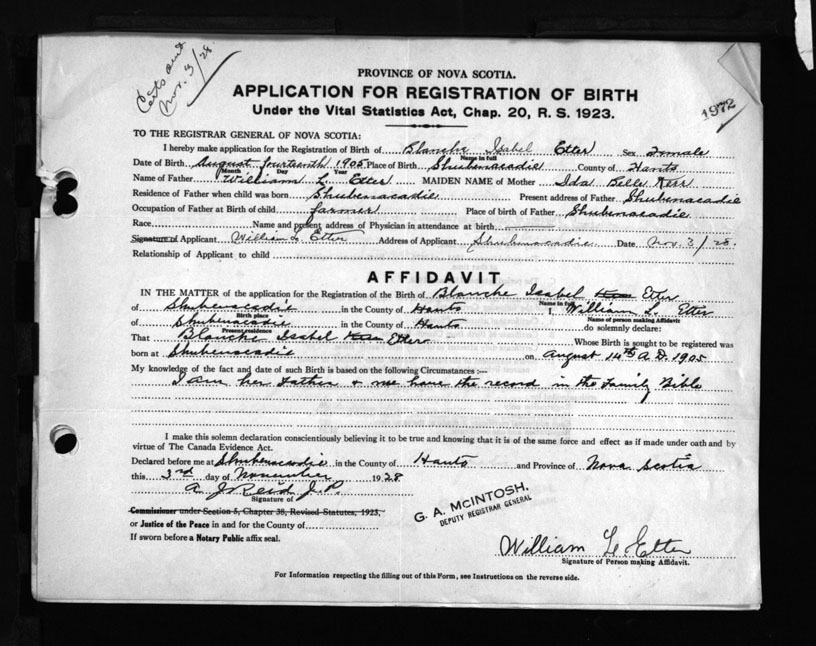 Certs sent
Nov. 3/28.
PROVINCE OF NOVA SCOTIA.
APPLICATION FOR REGISTRATION OF BIRTH
Under the Vital Statistics Act, Chap. 20, R. S. 1923.
1972
TO THE REGISTRAR GENERAL OF NOVA SCOTIA:
I hereby make application for the Registration of Birth of Blanche Isabel Etter Sex Female
Name in full
Date of Birth August fourteenth 1905 Place of Birth Shubenacadie County of Hants
Month Day Year
Name of Father William L. Etter MAIDEN NAME of Mother Ida Belle Kerr
Residence of Father when child was born Shubenacadie Present address of Father Shubenacadie
Occupation of Father at Birth of child farmer Place of birth of Father Shubenacadie
Race Name and present address of Physician in attendance at birth
Signature of Applicant William L. Etter Address of Applicant Shubenacadie Date Nov. 3/28.
Relationship of Applicant to child
AFFIDAVIT
IN THE MATTER of the application for the Registration of the Birth of Blanche Isabel Etter
Name in full
of Shubenacadie in the County of Hants I, William L. Etter
Birth place Name of person making Affidavit
of Shubenacadie in the County of Hants do solemnly declare:
Present residence
That Blanche Isabel Etter Whose Birth is sought to be registered was
born at Shubenacadie on August 14th A.D. 1905
My knowledge of the fact and date of such Birth is based on the following Circumstances :—
I am her Father & we have the record in the Family Bible
I make this solemn declaration conscientiously believing it to be true and knowing that it is of the same force and effect as if made under oath and by
virtue of The Canada Evidence Act.
Declared before me at Shubenacadie in the County of Hants and Province of Nova Scotia
this 3rd day of November 1928
A J Reid J.P.
Signature of
Commissioner under Section 5, Chapter 38, Revised Statutes, 1923,
or Justice of the Peace in and for the County of
If sworn before a Notary Public affix seal.
G. A. McINTOSH.
DEPUTY REGISTRAR GENERAL
William L Etter
Signature of Person making Affidavit.
For Information respecting the filling out of this Form, see Instructions on the reverse side.